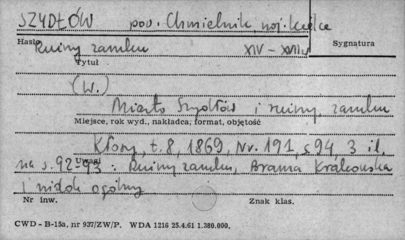 SZYDŁÓW pow. Chmielnik, woj. kielce
Hasło Ruiny zamku XIV – XVII w Sygnatura
Tytuł
(W.)
Miasto Szydłów i ruiny zamku
Miejsce, rok wyd., nakładca, format, objętość
Kłosy, t. 8, 1869, Nr. 191, s 94, 3 il,
Uwagi
na s. 92-93: Ruiny zamku, Brama Krakowska
i widok ogólny
Nr inw. Znak klas.
CWD - B-15a, nr 937/ZW/P. WDA 1216 25.4.61 1.380.000.